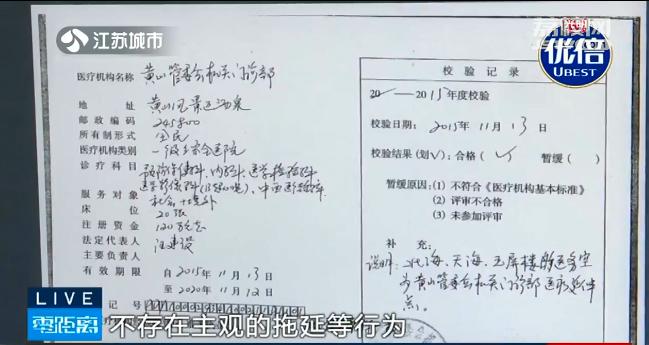 江苏城市
优倍
UBEST
医疗机构名称 黄山管委会机关门诊部
地址 黄山风景区汤泉
邮政编码 245800
所有制形式 全民
医疗机构类别 一级综合医院
诊疗科目 预防保健科、内科、医学检验科
服务对象 社会+境外
床位 20张
注册资金 120万元
法定代表人
主要负责人
有效期限 自2015年11月13日
至2020年11月12日
校验记录
2015年度校验
校验日期: 2015年11月13日
校验结果(划√): 合格(√) 暂缓( )
暂缓原因: (1) 不符合《医疗机构基本标准》
(2) 评审不合格
(3) 未参加评审
补充:
说明: 北海、天海、玉屏楼医务室
为黄山管委会机关门诊部医疗延伸
点。
LIVE
零距离
不存在主观的拖延等行为